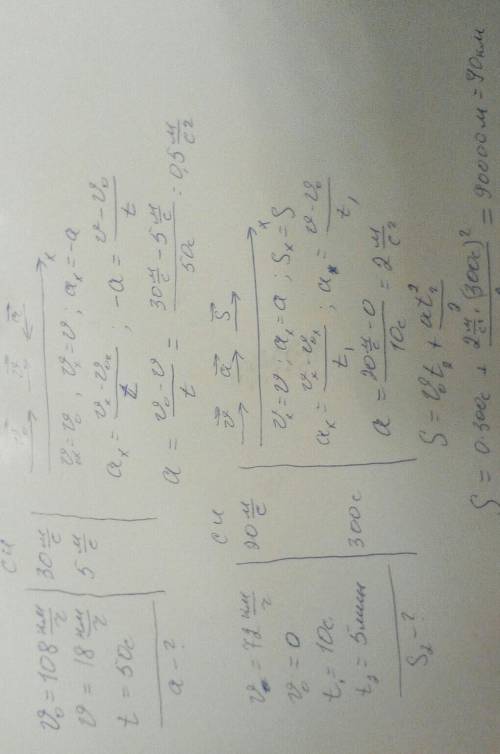 СИ
v₀ = 108 км/ч | 30 м/с
v = 18 км/ч | 5 м/с
t = 50с
a - ?
v₀ₓ = v₀ ; vₓ = v ; aₓ = -a
aₓ = (vₓ - v₀ₓ)/t ; -a = (v - v₀)/t
a = (v₀ - v)/t = (30 м/с - 5 м/с)/50с = 0,5 м/с²
СИ
v = 72 км/ч | 20 м/с
v₀ = 0
t₁ = 10с
t₂ = 5мин | 300с
S₂ - ?
v⃗ a⃗ S⃗
x
vₓ = v ; aₓ = a ; Sₓ = S
aₓ = (vₓ - v₀ₓ)/t₁ ; a = (v - v₀)/t₁
a = (20 м/с - 0)/10с = 2 м/с²
S = v₀t₂ + at₂²/2
S = 0·300с + 2 м/с² · (300с)² = 90000м = 90км